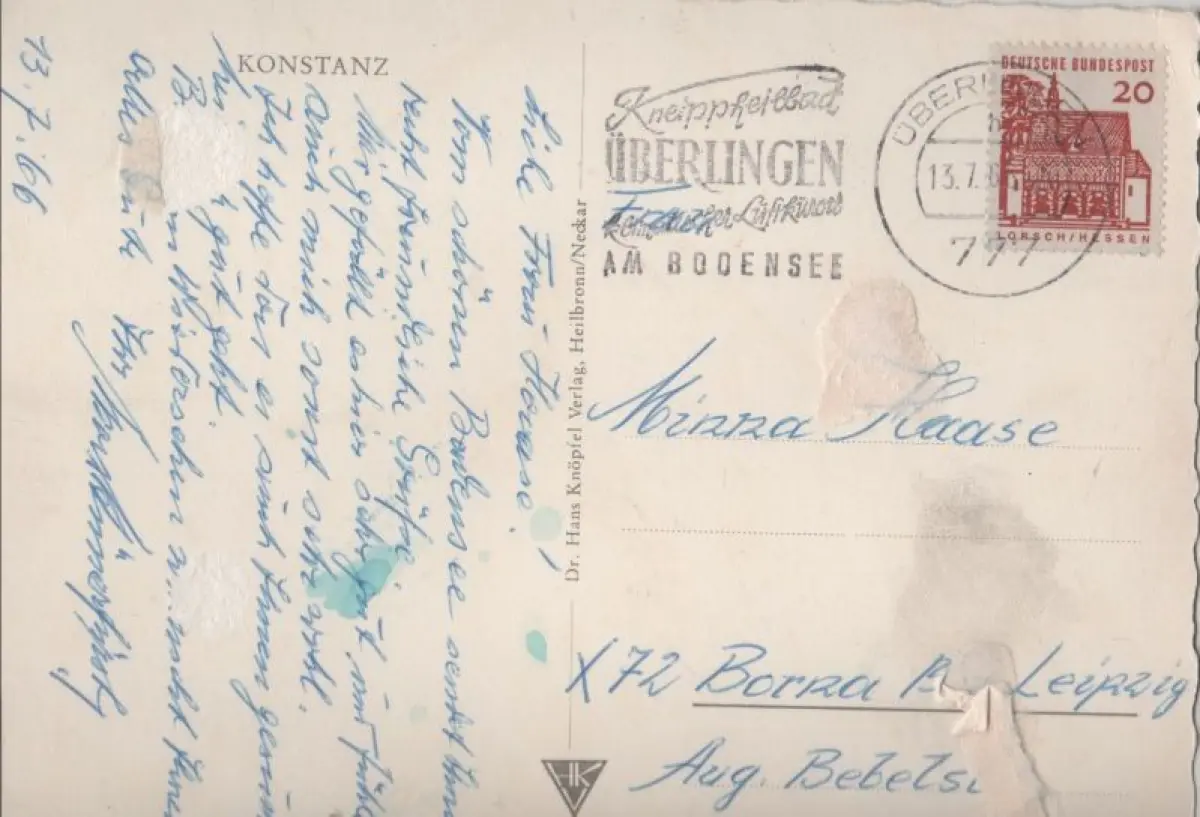 KONSTANZ
13.7.66
Liebe Frau Haase!
Vom schönen Bodensee sendet Ihn
recht freundliche Grüße.
Mir gefällt es hier sehr gut und fühle
auch mich sonst sehr wohl.
Ich hoffe daß es auch Ihnen gesund
gut geht.
B. im
alles Gute Ihr
Dr. Hans Knöpfel Verlag, Heilbronn/Neckar
HK
Kneippheilbad
ÜBERLINGEN
Luftkurort
AM BODENSEE
ÜBERL
13.7.
777
DEUTSCHE BUNDESPOST
20
LORSCH/HESSEN
Frau
Minna Haase
X72 Borna B. Leipzig
Aug. Bebelst